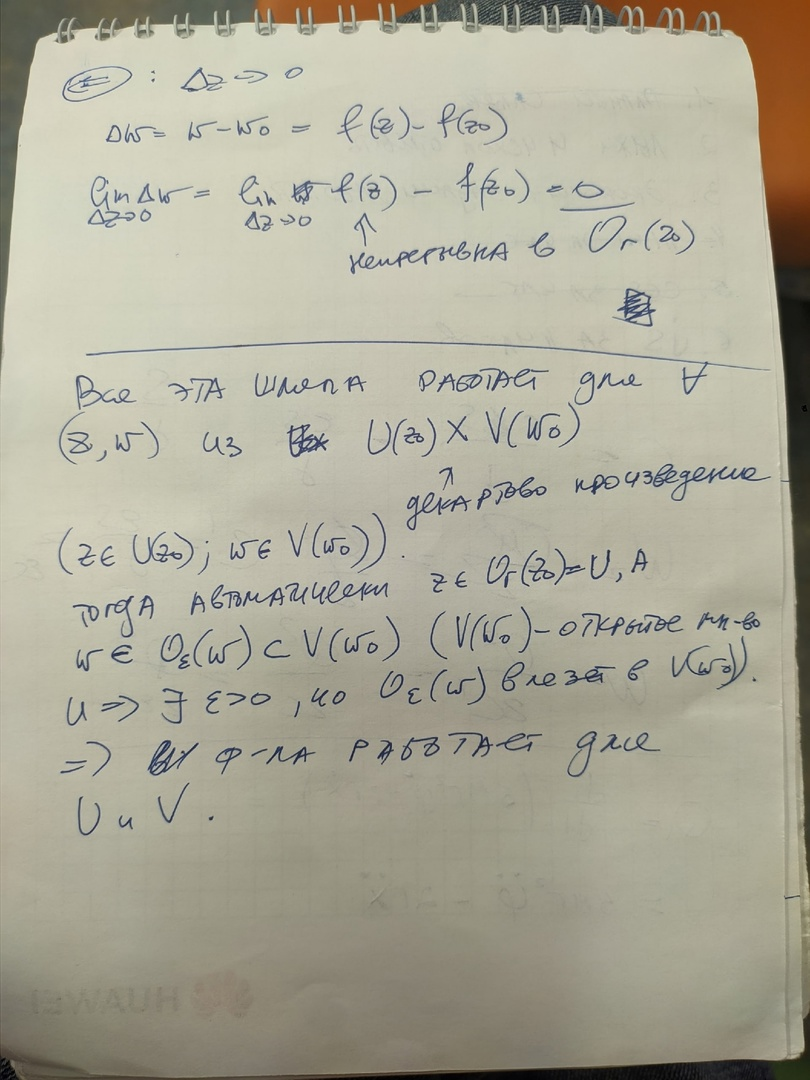 ⇐ : Δz → 0
Δw = w - w₀ = f(z) - f(z₀)
lim Δw = lim f(z) - f(z₀) = 0
Δz→0 Δz→0
непрерывна в O_r(z₀)
Вся эта шляпа работает для ∀
(z, w) из U(z₀) × V(w₀)
декартово произведение
(z ∈ U(z₀); w ∈ V(w₀)).
тогда автоматически z ∈ O_r(z₀) = U, а
w ∈ O_ε(w) ⊂ V(w₀) (V(w₀) - открытое мн-во
и ⇒ ∃ ε>0, но O_ε(w) влезет в V(w₀)).
⇒ ф-ла работает для
U и V.
HUAWEI